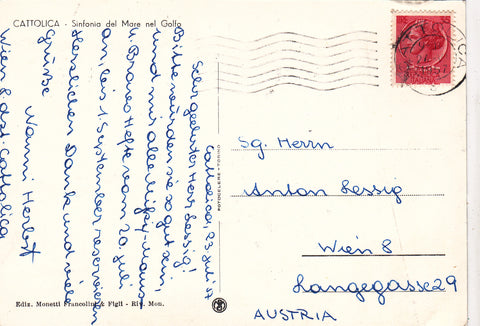 CATTOLICA - Sinfonia del Mare nel Golfo
Cattolica, 23. Juli 57
Sehr geehrter Herr Lessig!
Bitte würden sie so gut sein,
und mir alle Micky-Maus
u. Bravo Hefte vom 20. Juli
an, bis 1. September reservieren
Herzlichen Dank und viele
Grüsse Nanni Herbst
Wien 8 dzt. Cattolica
FOTOCELERE - TORINO
Sg. Herrn
Anton Lessig
Wien 8
Langegasse 29
AUSTRIA
Ediz. Monetti Francolini & Figli - Riv. Mon.